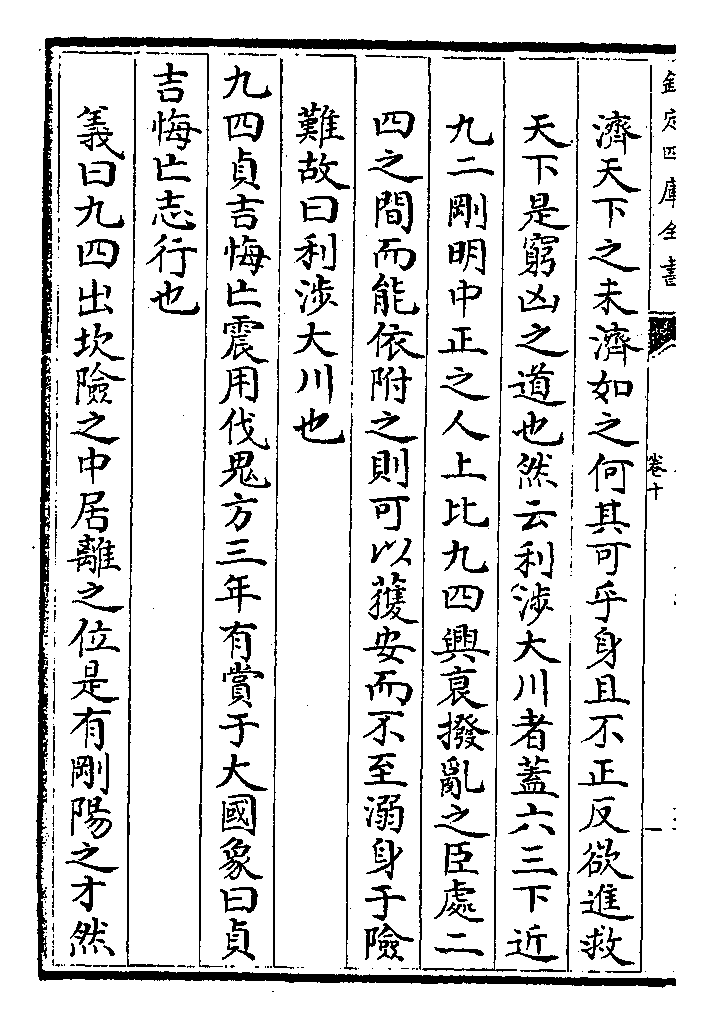 欽定四庫全書
卷十
濟天下之未濟如之何其可乎身且不正反欲進救
天下是窮凶之道也然云利涉大川者蓋六三下近
九二剛明中正之人上比九四興衰撥亂之臣處二
四之間而能依附之則可以獲安而不至溺身于險
難故曰利涉大川也
九四貞吉悔亡震用伐鬼方三年有賞于大國象曰貞
吉悔亡志行也
義曰九四出坎險之中居離之位是有剛陽之才然